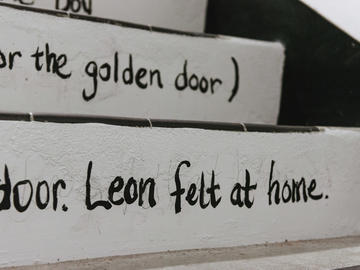 or the golden door)
door. Leon felt at home.